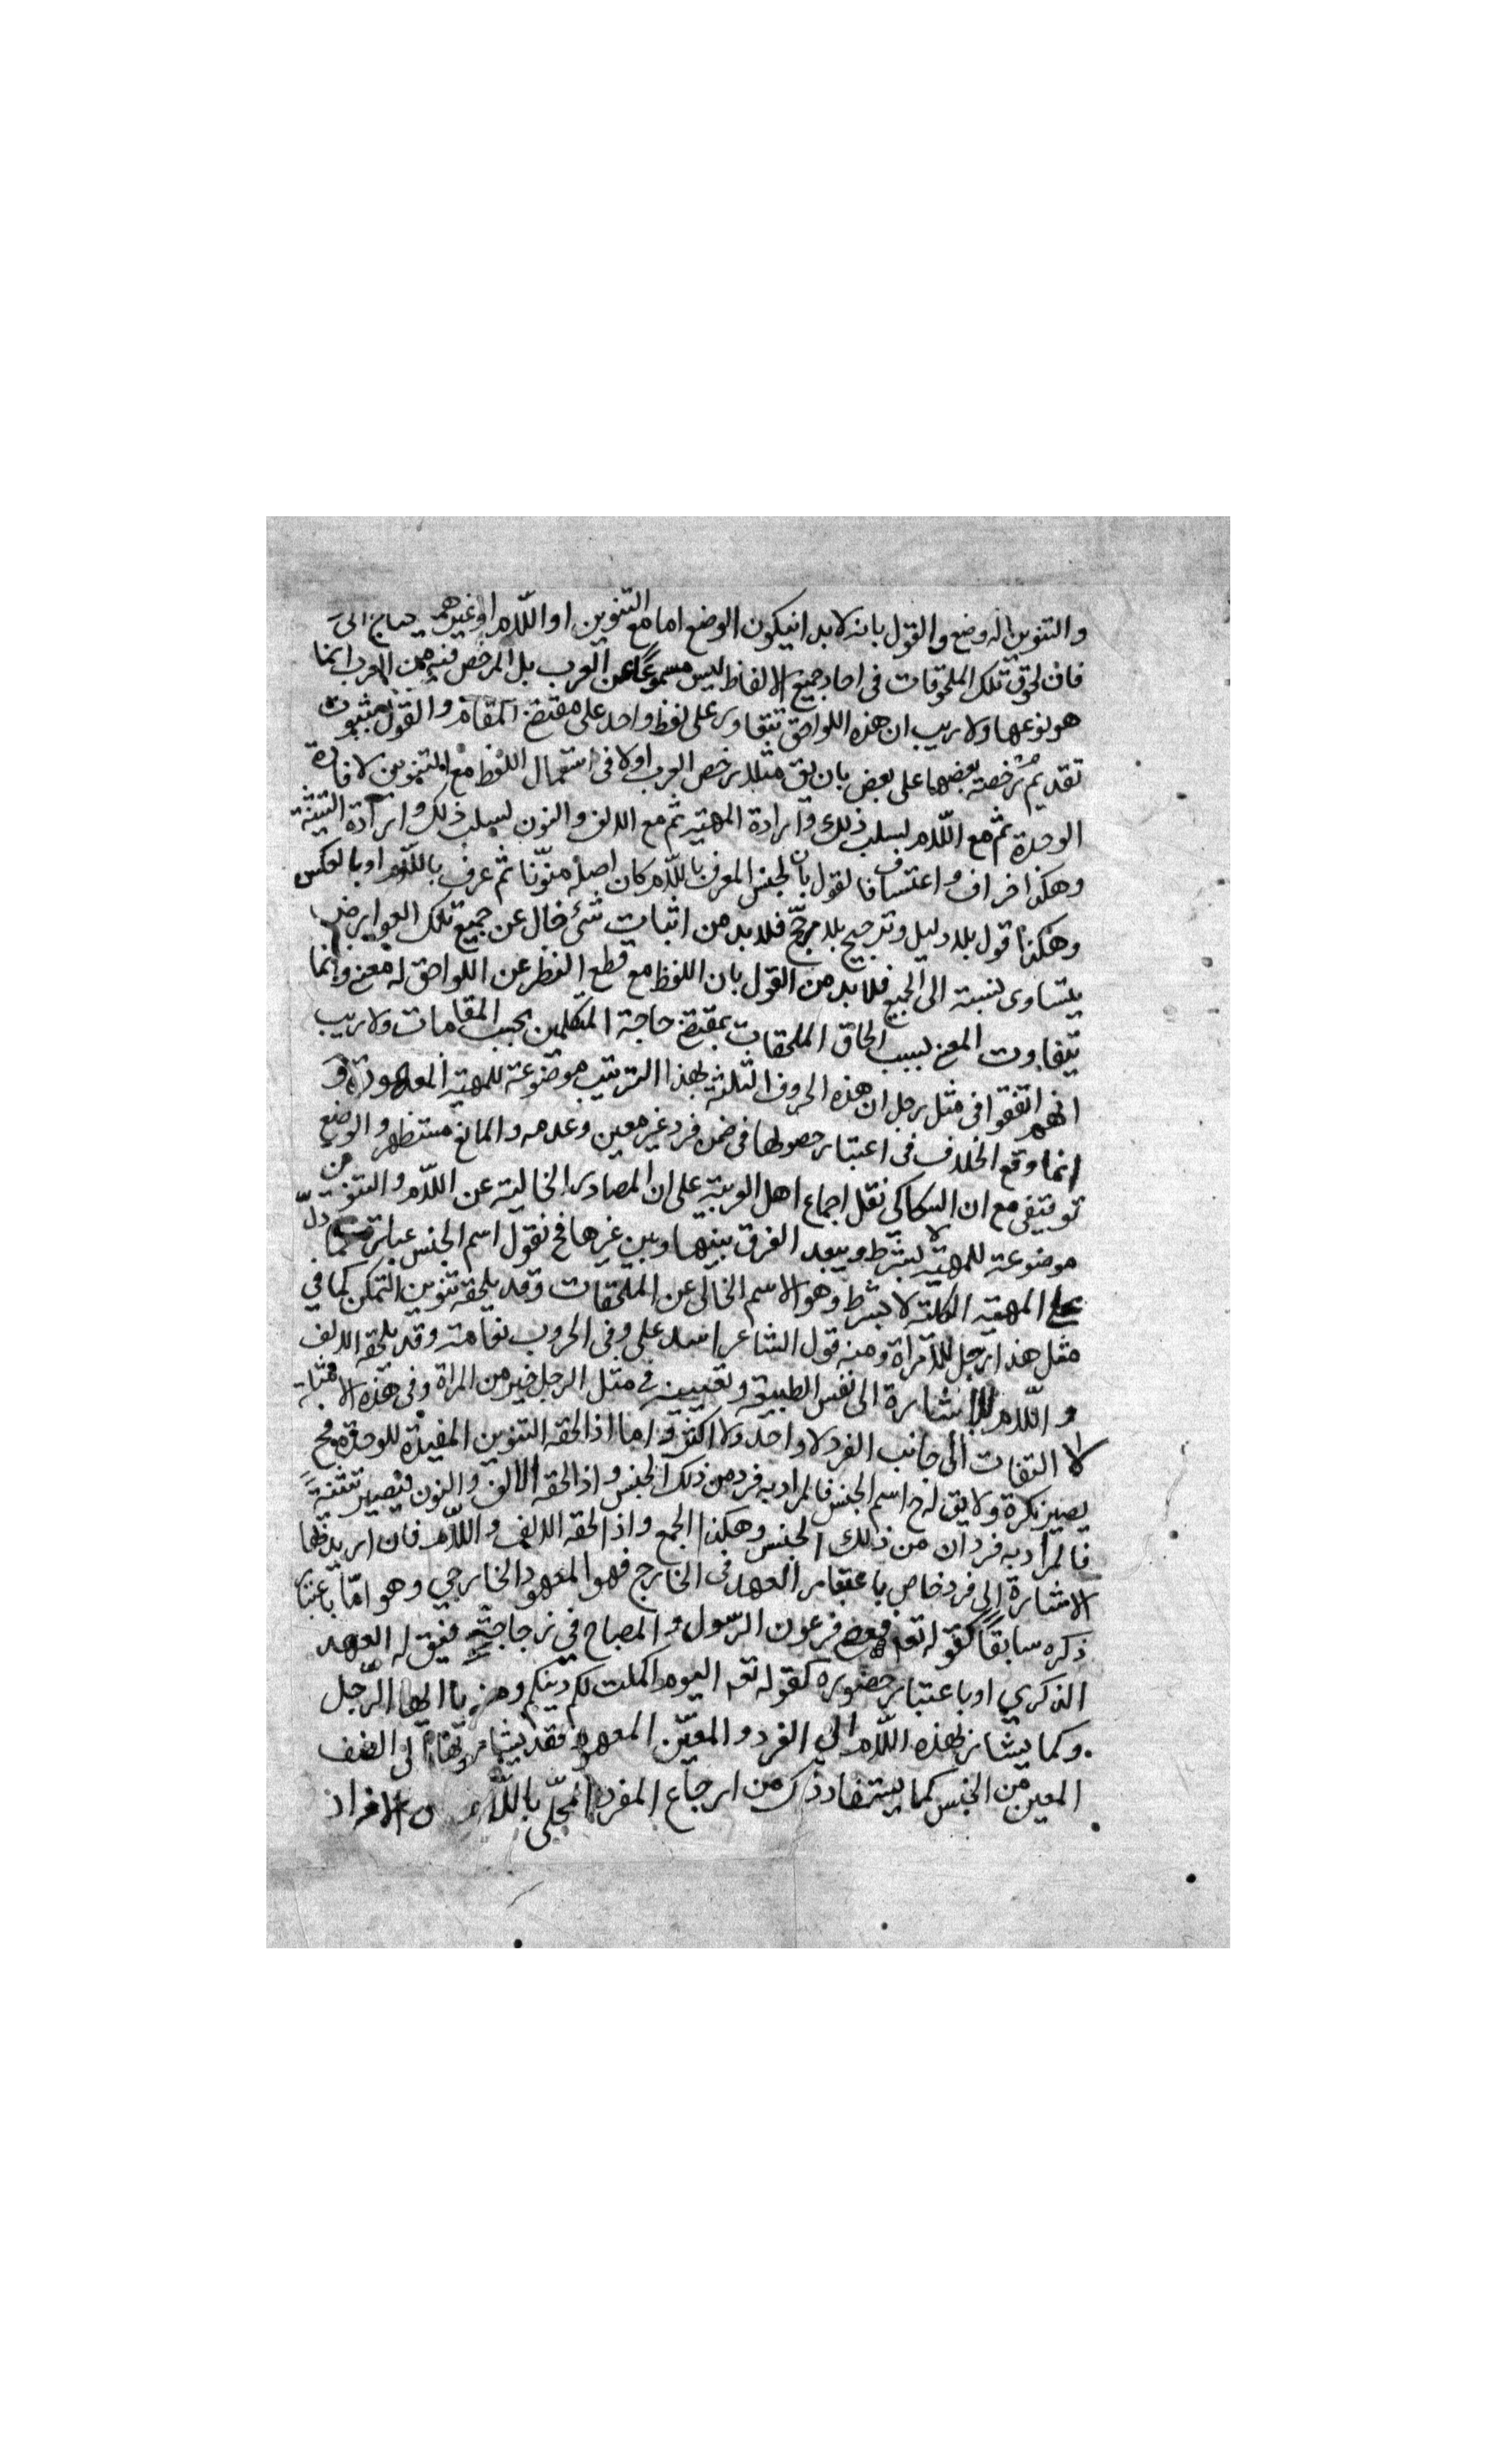 والتنوين له وضع والقول بانه لابد انيكون الوضع اما مع التنوين او اللام او غيرهما يحتاج الى
فان لحوق تلك الملحوقات فى احاد جميع الالفاظ ليس مسموعًا عن العرب بل المرخص فيه من العرب انما
هو نوعها ولا ريب ان هذه اللواحق تتعاور على لفظ واحد على مقتضى المقام والقول بثبوت
تقديم رخصة بعضها على بعض بان يق مثلا رخص العرب اولا فى استعمال اللفظ مع التنوين لافادة
الوحدة ثم مع اللام لسلب ذلك وارادة المهية ثم مع الالف والنون لسلب ذلك وارادة التثنية
وهكذا خراف واعتساف فالقول بان الجنس المعرف باللام كان اصله منوّنا ثم عرف باللام او بالعكس
وهكذا قول بلا دليل وترجيح بلا مرجّح فلابد من اثبات شئ خال عن جميع تلك العوارض
يتساوى نسبته الى الجميع فلابد من القول بان اللفظ مع قطع النظر عن اللواحق له معنى وانما
يتفاوت المعنى بسبب الحاق الملحقات بمقتضى حاجة المتكلمين بحسب المقامات ولا ريب
انهم اتفقوا فى مثل رجل ان هذه الحروف الثلثة بهذا الترتيب موضوعة للمهية المعهودة و
انما وقع الخلاف فى اعتبار حصولها فى ضمن فرد غير معين وعدمه والمانع مستظهر والوضع
توقيفى مع ان السكاكي نقل اجماع اهل العربية على ان المصادر الخالية عن اللام والتنوين
موضوعة للمهية لا بشرط ويبعد الفرق بينها وبين غيرها فح نقول اسم الجنس عبارة عما دلّ
على المهية الكلية لا بشرط وهو الاسم الخالى عن الملحقات وقد يلحقه تنوين التمكن كما في
مثل هذا رجل لا امراة ومنه قول الشاعر اسد على وفى الحروب نعامة وقد يلحقه الالف
و اللام للاشارة الى نفس الطبيعة وتعيينه في مثل الرجل خير من المراة وفى هذه الامثلة
لا التفات الى جانب الفرد لا واحد ولا اكثر واما اذا لحقه التنوين المفيدة للوحدة فح
يصير نكرة ولا يق له ح اسم الجنس فالمراد به فرد من ذلك الجنس واذا لحقه الالف والنون فيصير تثنيةً
فالمراد به فردان من ذلك الجنس وهكذا الجمع واذا لحقه الالف واللام فان اريد بها
الاشارة الى فرد خاص باعتبار العهد فى الخارج فهو المعهود الخارجي وهو امّا باعتبار
ذكره سابقاً كقوله تعم فعصى فرعون الرسول و المصباح في زجاجة فيق له العهد
الذكري او باعتبار حضوره كقوله تعم اليوم اكملت لكم دينكم ومنه يا ايها الرّجل
وكما يشار بهذه اللام الى الفرد والمعيّن المعهود فقد يشار بها الى الصنف
المعين من الجنس كما يستفاد ذلك من ارجاع المفرد المحلّى باللام الافراد